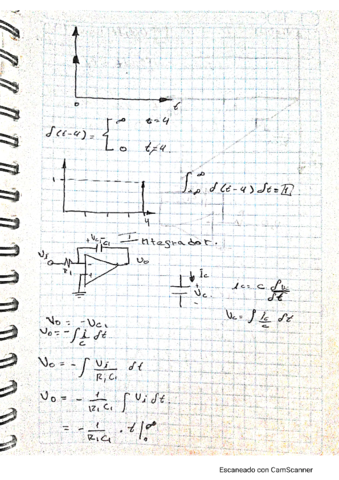 0
t
δ(t-4) = { ∞ t=4
0 t≠4
1
4
∫_{-∞}^{∞} δ(t-4) dt = 1
Integrador.
+ Vc - C1
Vi
R1
Vo
Ic
Vc
-
ic = C dVc/dt
Vc = ∫ Ic/C dt
Vo = -Vc1
Vo = -∫ i/C dt
Vo = -∫ Vi/(R1C1) dt
Vo = - 1/(R1C1) ∫ Vi dt.
= - 1/(R1C1) · t |₀
Escaneado con CamScanner